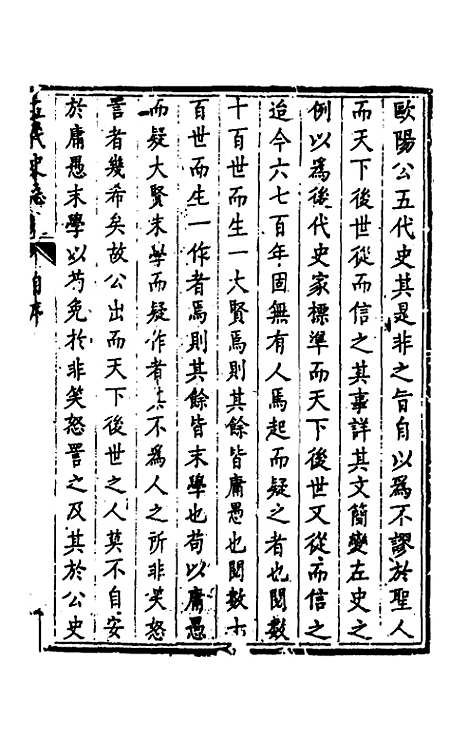 歐陽公五代史其是非之旨自以爲不謬於聖人
而天下後世從而信之其事詳其文簡變左史之
例以爲後代史家標準而天下後世又從而信之
迨今六七百年固無有人焉起而疑之者也閱數
十百世而生一大賢焉則其餘皆庸愚也閱數十
百世而生一作者焉則其餘皆末學也苟以庸愚
而疑大賢末學而疑作者其不爲人之所非笑怒
詈者幾希矣故公出而天下後世之人莫不自安
於庸愚末學以苟免於非笑怒詈之及其於公史
五代史志疑 自序